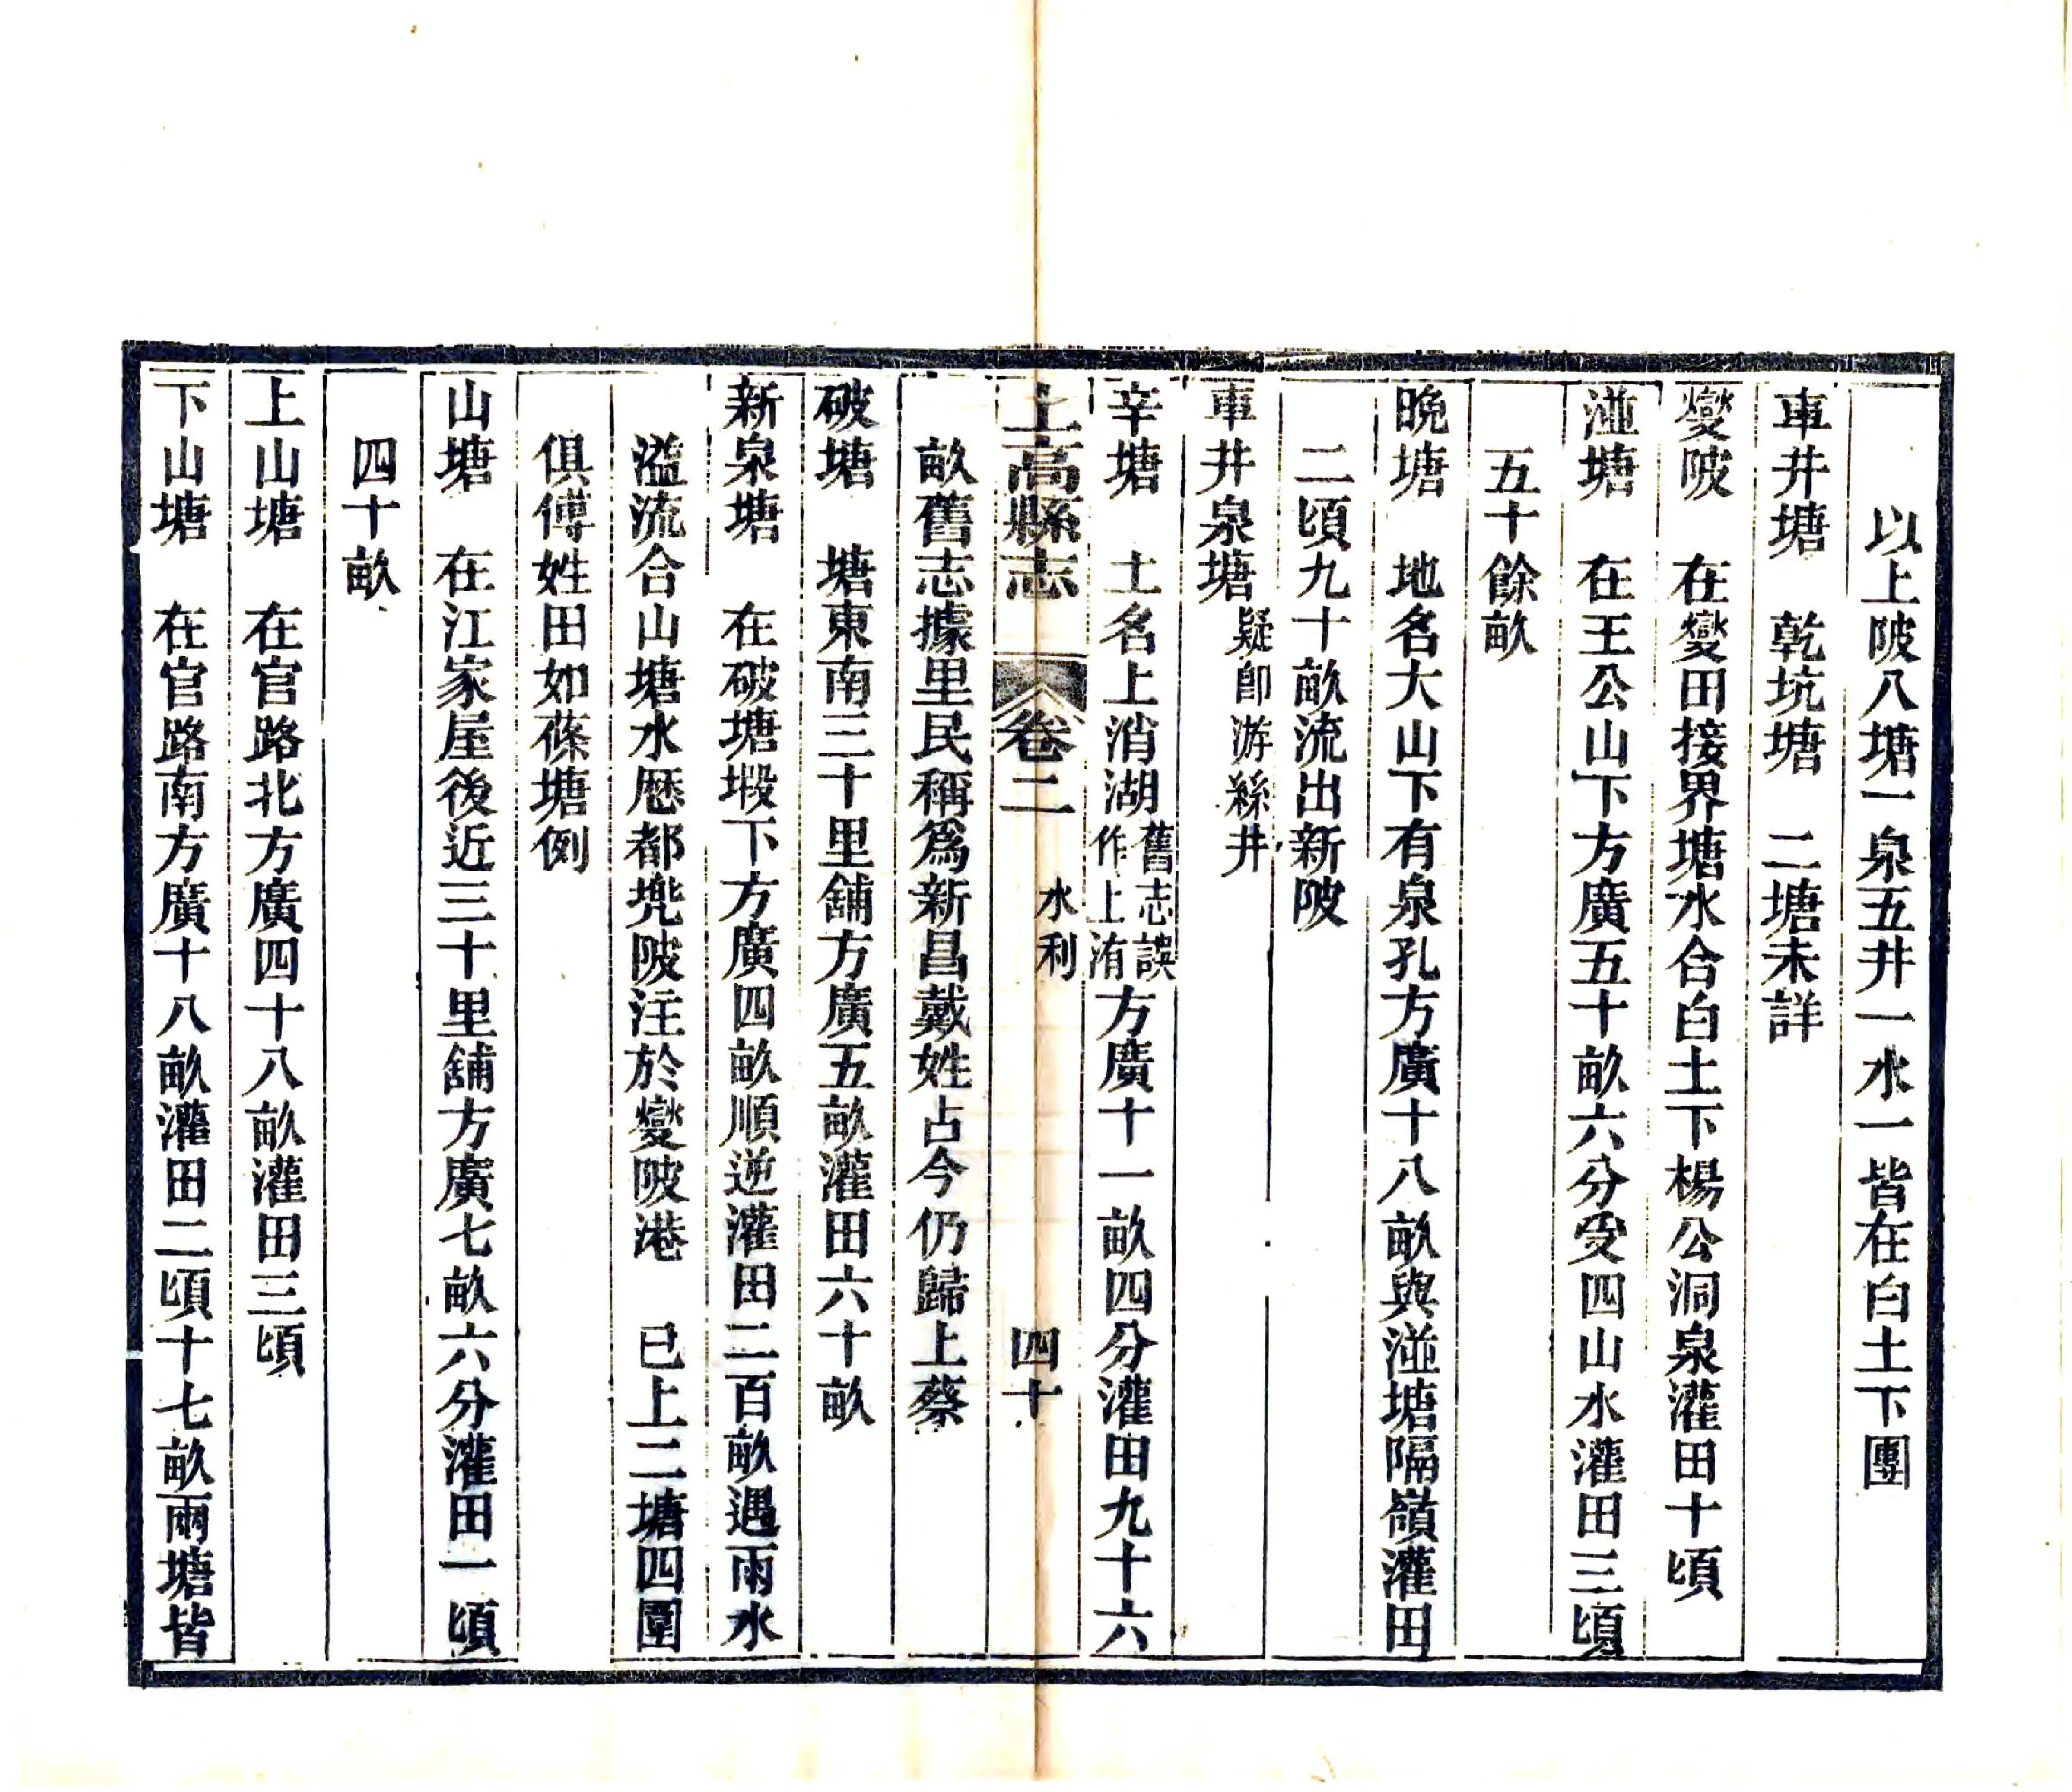 以上陂八塘一泉五井一水一皆在白土下團
車井塘　乾坑塘　二塘未詳
燮陂　在燮田接界塘水合白土下楊公洞泉灌田十頃
湴塘　在王公山下方廣五十畝六分受四山水灌田三頃
五十餘畝
晚塘　地名大山下有泉孔方廣十八畝與湴塘隔嶺灌田
二頃九十畝流出新陂
車井泉塘疑卽游絲井
辛塘　土名上消湖舊志誤作上洧方廣十一畝四分灌田九十六
上高縣志　卷二　水利　四十
畝舊志據里民稱爲新昌戴姓占今仍歸上蔡
破塘　塘東南三十里舖方廣五畝灌田六十畝
新泉塘　在破塘塅下方廣四畝順逆灌田二百畝遇雨水
溢流合山塘水歷都兠陂注於燮陂港　已上二塘四圍
俱傅姓田如蓧塘例
山塘　在江家屋後近三十里舖方廣七畝六分灌田一頃
四十畝
上山塘　在官路北方廣四十八畝灌田三頃
下山塘　在官路南方廣十八畝灌田二頃十七畝兩塘皆